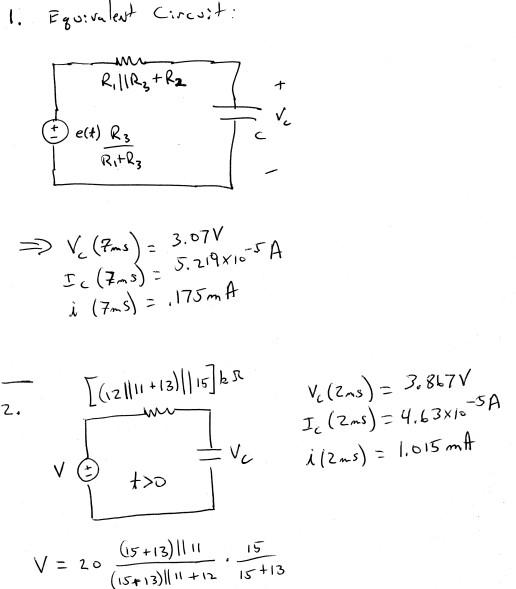 1. Equivalent Circuit:
R₁||R₃+R₂
+
e(t) R₃/(R₁+R₃)
C
Vc
−
⇒ Vc (7ms) = 3.07V
Ic (7ms) = 5.219×10⁻⁵ A
i (7ms) = .175mA
2.
[(12||11+13)||15]kΩ
V
t>0
Vc
Vc(2ms) = 3.867V
Ic(2ms) = 4.63×10⁻⁵A
i(2ms) = 1.015 mA
V = 20 (15+13)||11/((15+13)||11+12) · 15/(15+13)